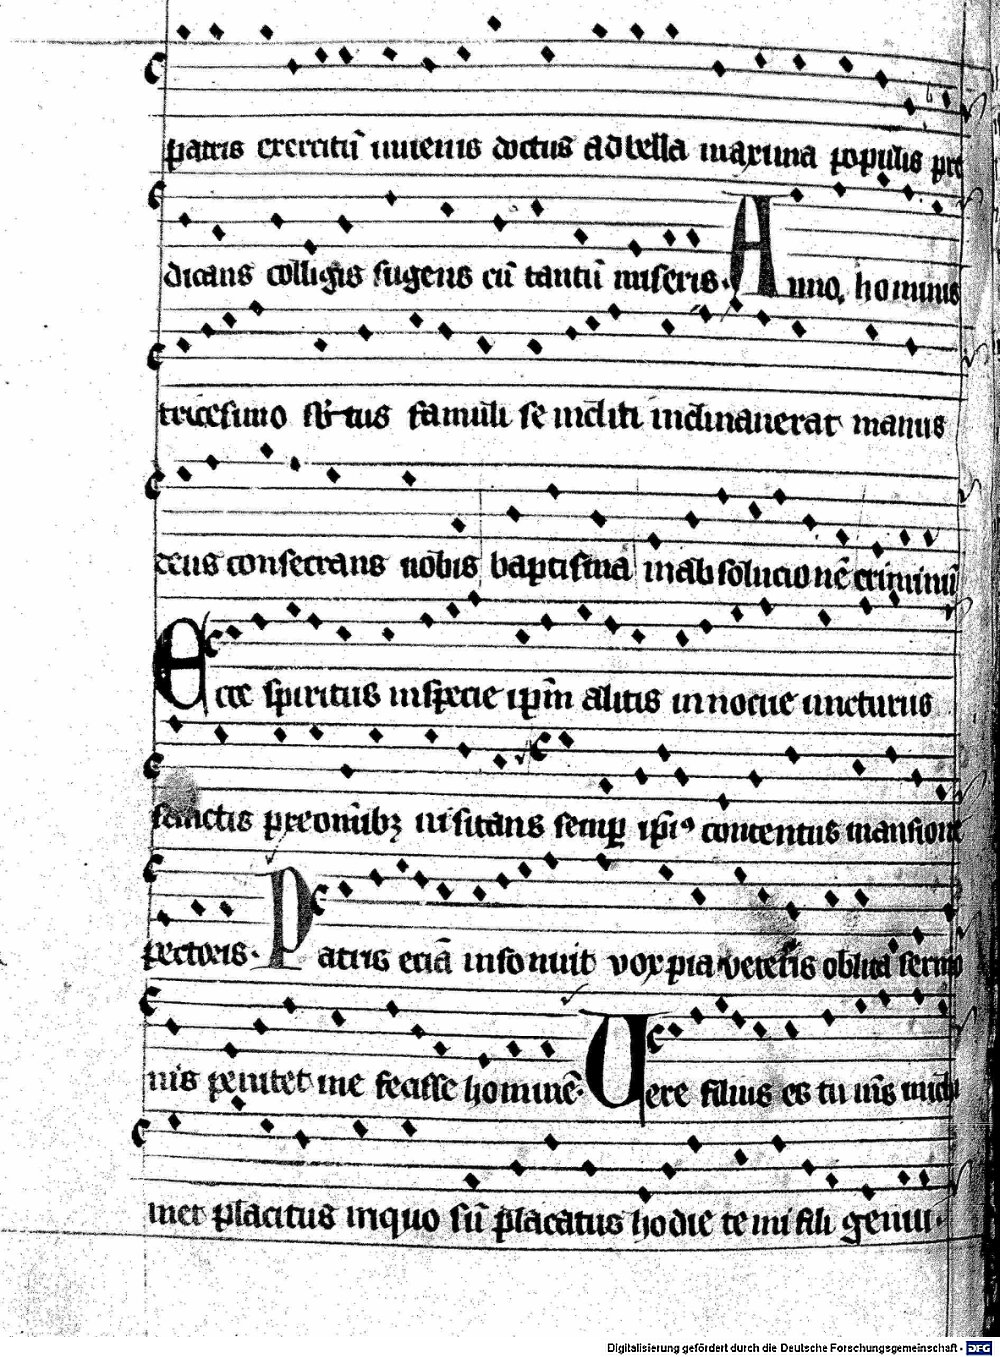 patris exercitū iuuenis doctus ad bella maxima populis pre
dicans colligis sugens cū tantū miseris. Anno hominis
tricesimo famuli se incliti inclinauerat manus
deus consecrans nobis baptisma in absolucionē criminū
Ecce spiritus in specie ipm̄ alitis innocue uncturus
sanctis pre omībꝫ uisitans semp ipiꝰ contentus mansione
pectoris. Patris eciā insonuit vox pia veteris oblita sermo
nis penitet me fecisse hominē. Vere filius es tu m̄s michi
met placitus in quo sū placatus hodie te mi fili genui.
Digitalisierung gefördert durch die Deutsche Forschungsgemeinschaft - DFG